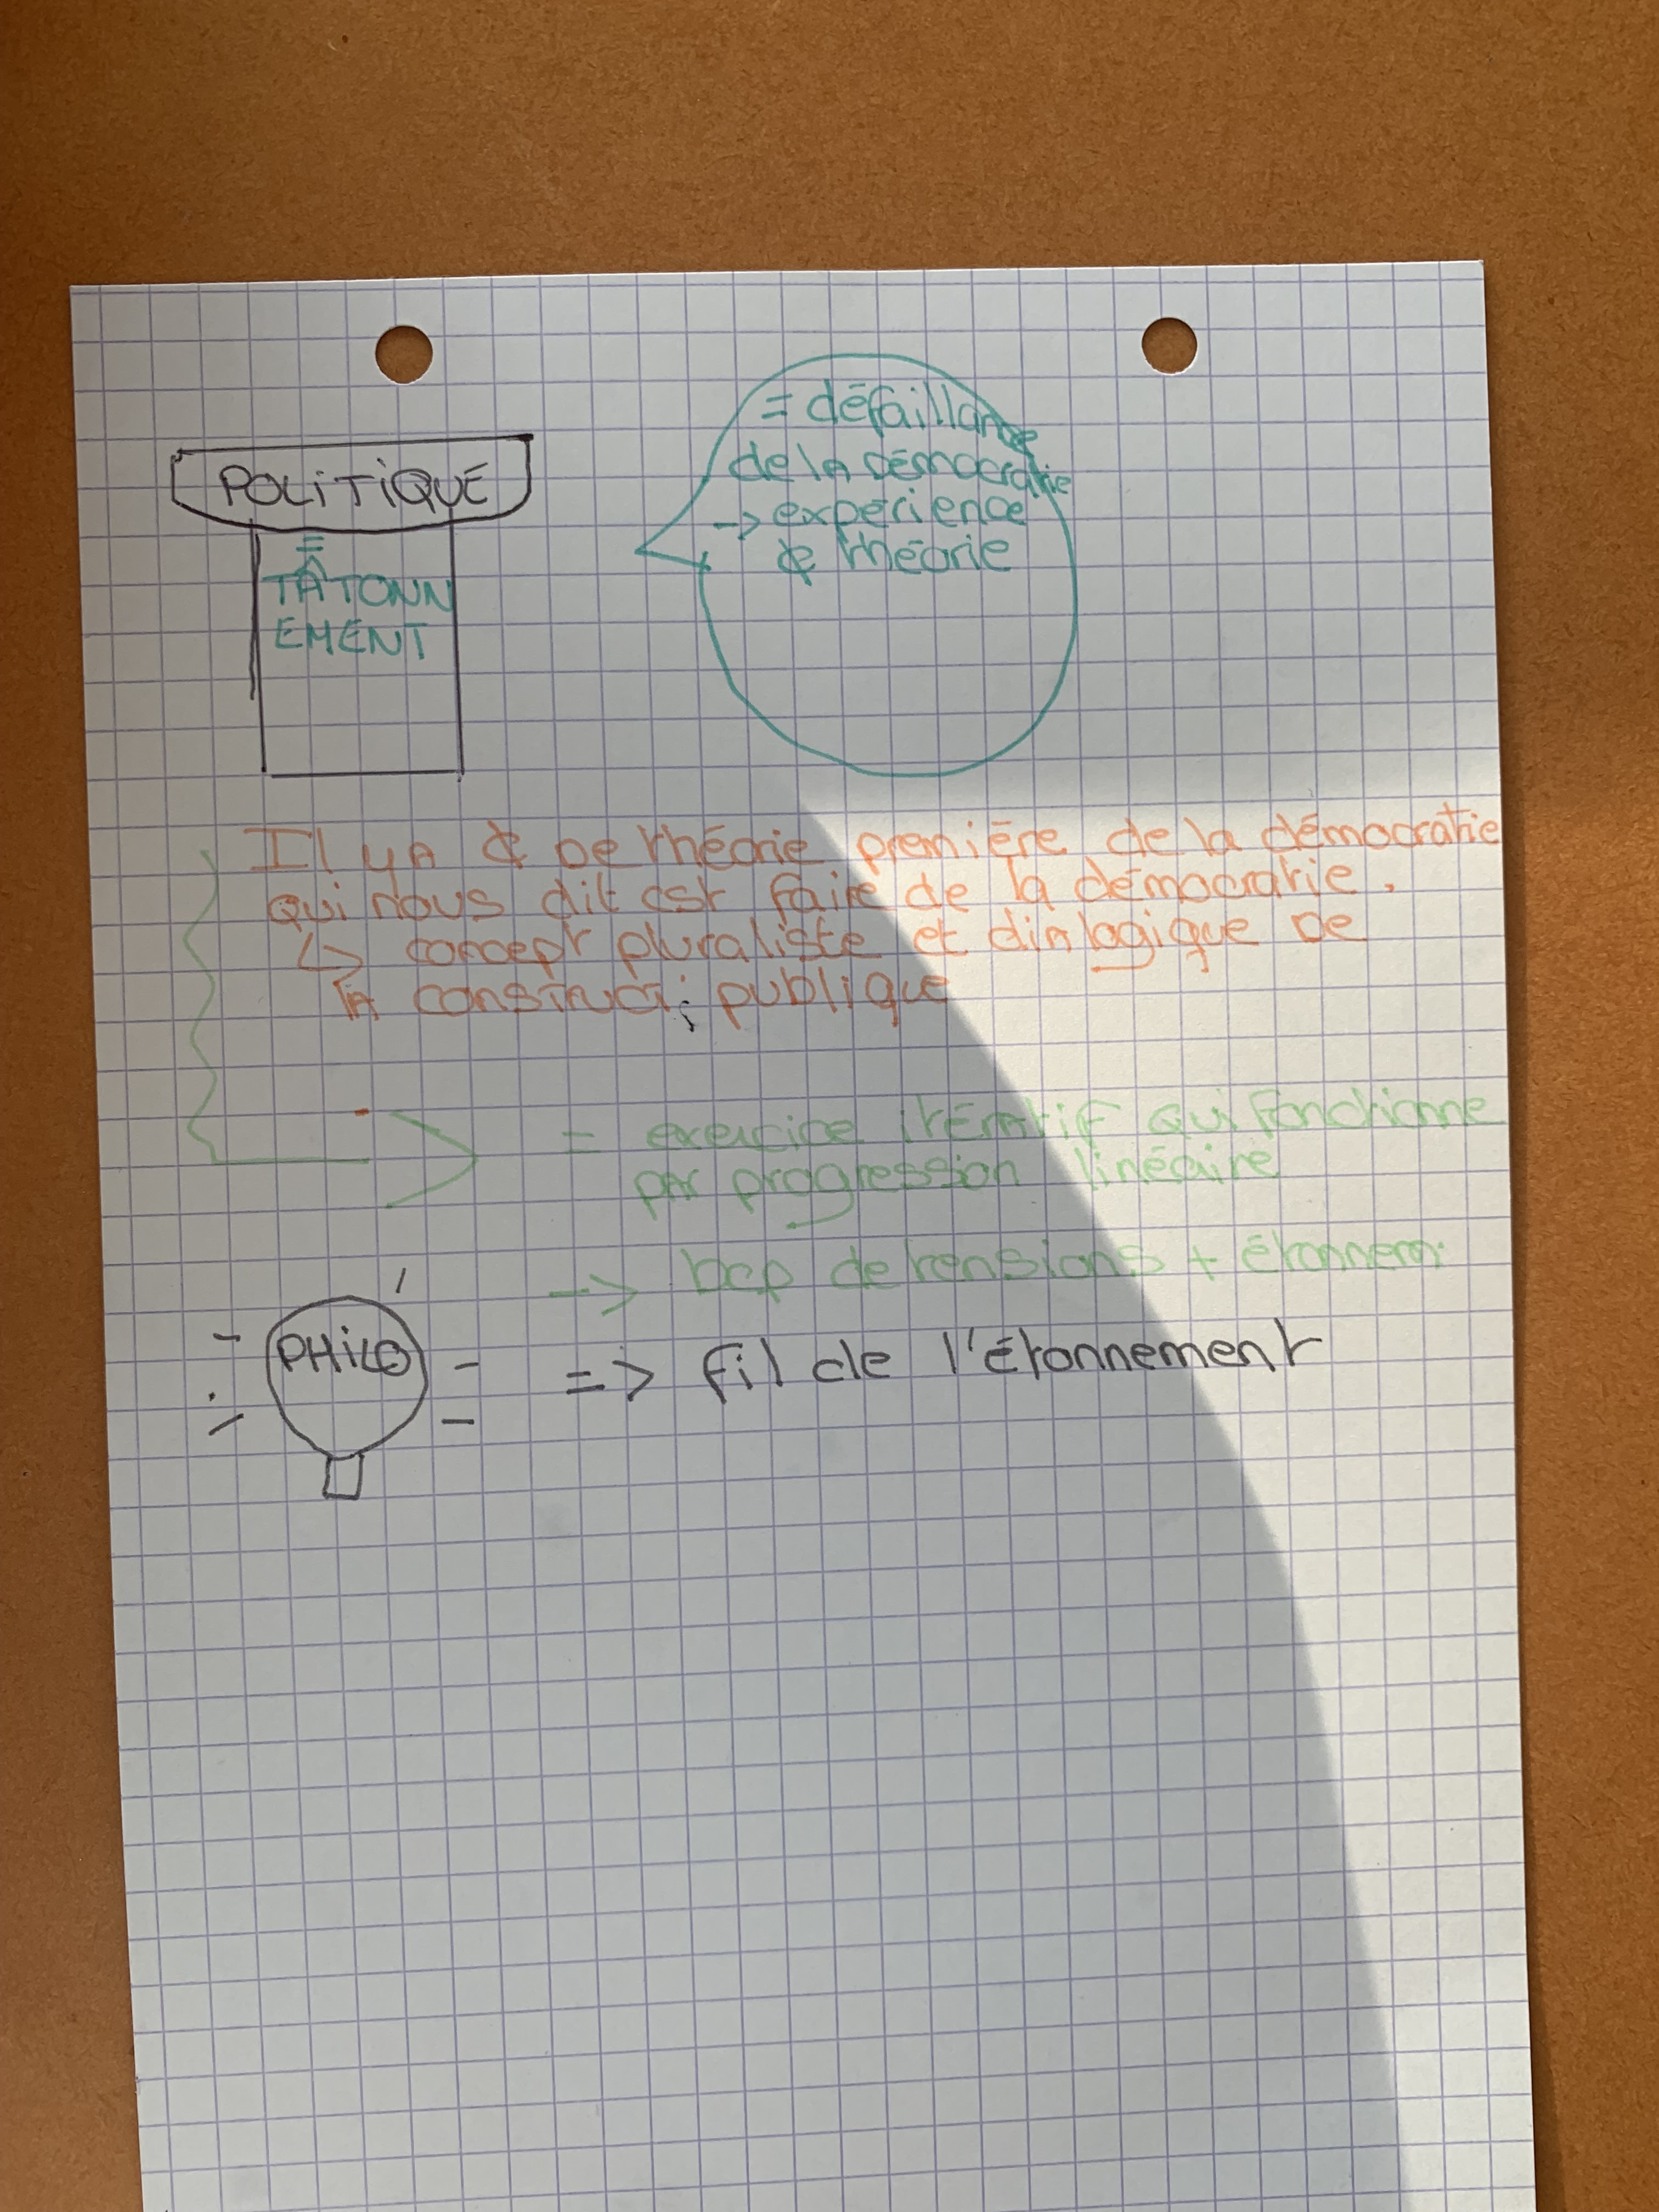 POLITIQUE
=
TÂTONN
EMENT
= défaillance
de la démocratie
-> expérience
& théorie
Il y a & de théorie première de la démocratie
qui nous dit est faire de la démocratie.
↳ concept pluraliste et dialogique de
la construct; publique
= exercice itératif qui fonctionne
par progression linéaire
-> bcp de tensions + étonnem.
PHILO
=> fil de l'étonnement